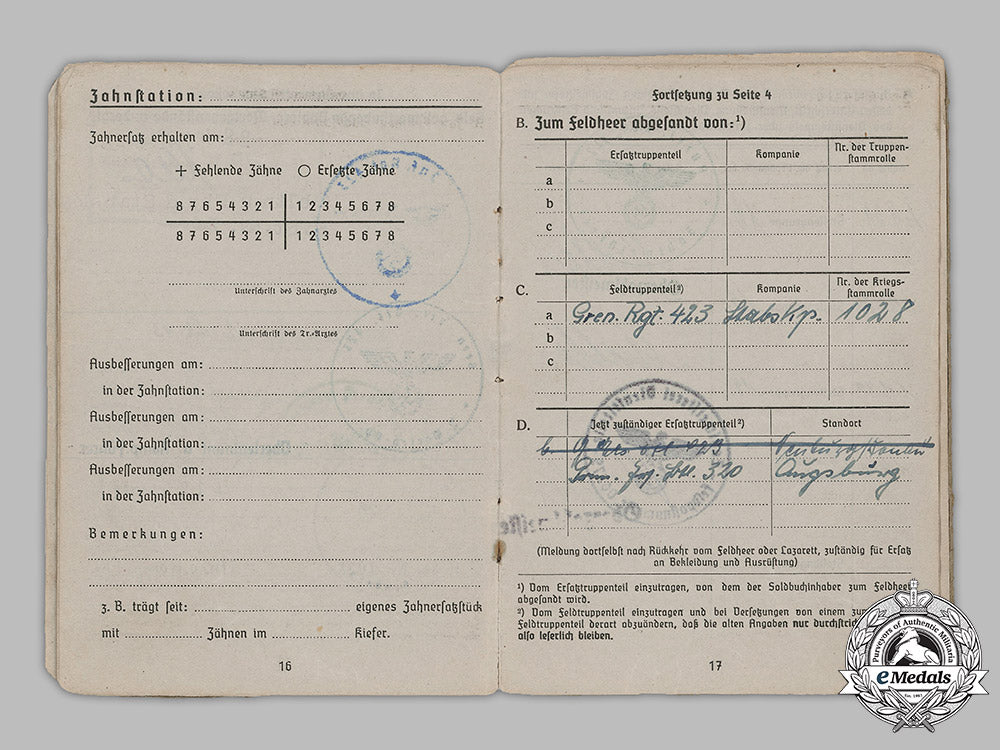 Zahnstation:
Zahnersatz erhalten am:
+ Fehlende Zähne ○ Ersetzte Zähne
8 7 6 5 4 3 2 1 | 1 2 3 4 5 6 7 8
8 7 6 5 4 3 2 1 | 1 2 3 4 5 6 7 8
Unterschrift des Zahnarztes
Unterschrift des Tr.-Arztes
Ausbesserungen am:
in der Zahnstation:
Ausbesserungen am:
in der Zahnstation:
Ausbesserungen am:
in der Zahnstation:
Bemerkungen:
z. B. trägt seit: eigenes Zahnersatzstück
mit Zähnen im Kiefer.
16
Fortsetzung zu Seite 4
B. Zum Feldheer abgesandt von:¹)
Ersatztruppenteil Kompanie Nr. der Truppen-
stammrolle
a
b
c
C. Feldtruppenteil²) Kompanie Nr. der Kriegs-
stammrolle
a Gren. Rgt. 423 Stabskp. 1028
b
c
D. Jetzt zuständiger Ersatztruppenteil²) Standort
423
320 Augsburg
(Meldung dortselbst nach Rückkehr vom Feldheer oder Lazarett, zuständig für Ersatz
an Bekleidung und Ausrüstung)
¹) Vom Ersatztruppenteil einzutragen, von dem der Soldbuchinhaber zum Feldheer
abgesandt wird.
²) Vom Feldtruppenteil einzutragen und bei Versetzungen von einem zum
Feldtruppenteil derart abzuändern, daß die alten Angaben nur durchstri
also leserlich bleiben.
17
Purveyors of Authentic Militaria
eMedals